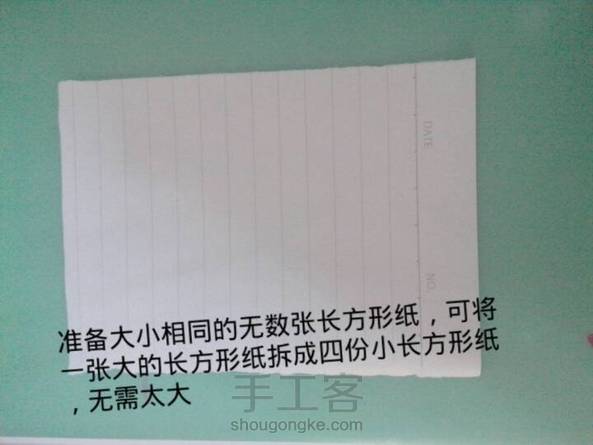 DATE
NO.
准备大小相同的无数张长方形纸，可将
一张大的长方形纸拆成四份小长方形纸
，无需太大
手工客
shougongke.com